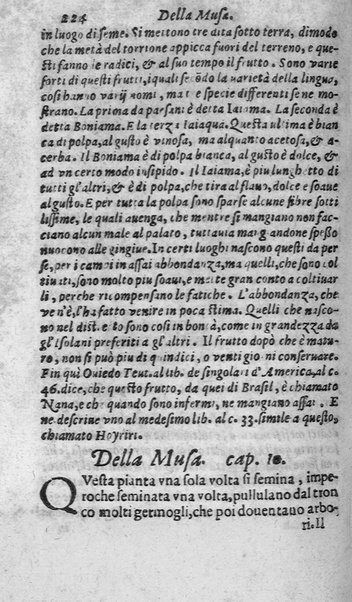 224 Della Musa.
in luogo di seme. Si mettono tre dita sotto terra, dimodo
che la metà del torrione appicca fuori del terreno, e que
sti fanno le radici, & al suo tempo il frutto. Sono varie
sorti di questi frutti, iquali secõdo la varietà della lingue,
cosi hanno varij nomi, ma e specie differenti se ne mo-
strano. La prima da paesani è detta Iaiama. La seconda è
detta Boniama. E la terza Iaiaqua. Questa ultima è bian
ca di polpa, al gusto è vinosa, ma alquanto acetosa, & a-
cerba. Il Boniama è di polpa bianca, al gusto è dolce, &
ad vn certo modo insipido. Il Iaiama, è piu lunghetto di
tutti gl'altri, & è di polpa, che tira al flauo, dolce e soaue
al gusto. E per tutta la polpa sono sparse alcune fibre sotti
lissime, le quali auenga, che mentre si mangiano non fac-
ciano alcun male al palato, tuttauia mangiandone spesso
nuocono alle gingiue. In certi luoghi nascono questi da per
se, per i campi in assai abbondanza, ma quelli, che sono col
tiuati, sono molto piu soaui, e mette gran conto a coltiuar
li, perche ricompensano le fatiche. L'abbondanza, che
ve n'è, l'ha fatto venire in poca stima. Quelli che nasco-
no nel distretto sono cosi in bontà, come in grandezza da
gl'Isolani preferiti a gl'altri. Il frutto dopò che è matu-
ro, non si può piu di quindici, o venti giorni conseruare.
Fin quì Ouiedo Teut. al lib. de singolari d'America, al c.
46. dice, che questo frutto, da quei di Brasil, è chiamato
Nana, e che quando sono infermi, ne mangiano assai. E
ne descriue vno al medesimo lib. al c. 33. simile a questo,
chiamato Hoyriri.
Della Musa. cap. 10.
QVesta pianta vna sola volta si semina, impe
roche seminata vna volta, pullulano dal tron
co molti germogli, che poi douentano arbo-
ri. Il